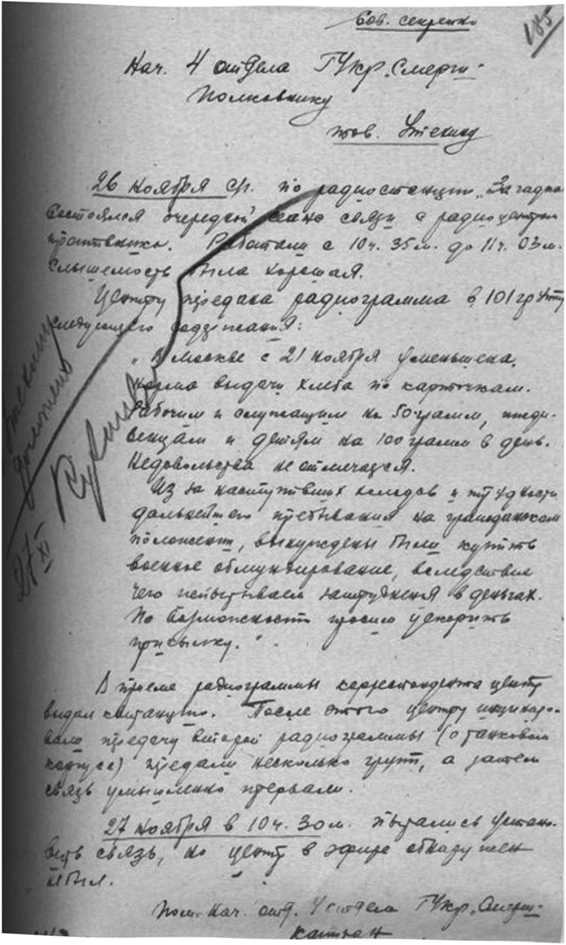 Сов. секретно
185
Нач. 4 отдела ГУкр. "Смерш"
Полковнику
тов. Утехину
26 ноября с/г. по радиостанции „Загадка
состоялся очередной сеанс связи с радиоцентром
противника. Работали с 10ч. 35м. до 11ч. 03м.
слышимость была хорошая.
Центру передана радиограмма в 101 группу
следующего содержания:
„В Москве с 21 ноября уменьшена
норма выдачи хлеба по карточкам.
Рабочим и служащим на 50 грамм, ижди-
венцам и детям на 100 грамм в день.
Недовольства не отмечается.
Из за наступивших холодов и трудности
дальнейшего пребывания на гражданском
положении, вынуждены были купить
военное обмундирование, вследствие
чего испытываем затруднения в деньгах.
По возможности просим ускорить
присылку."
В приеме радиограммы корреспондента центр
выдал квитанцию. После этого центру
передачу второй радиограммы (о танковом
корпусе) передали несколько групп, а затем
связь умышленно прервали.
27 ноября в 10ч. 30м. пытались устано-
вить связь, но центр в эфире обнаружен
не был.
Пом. Нач. отд. 4 отдела ГУкр. "Смерш"
капитан
доложено
27/XI